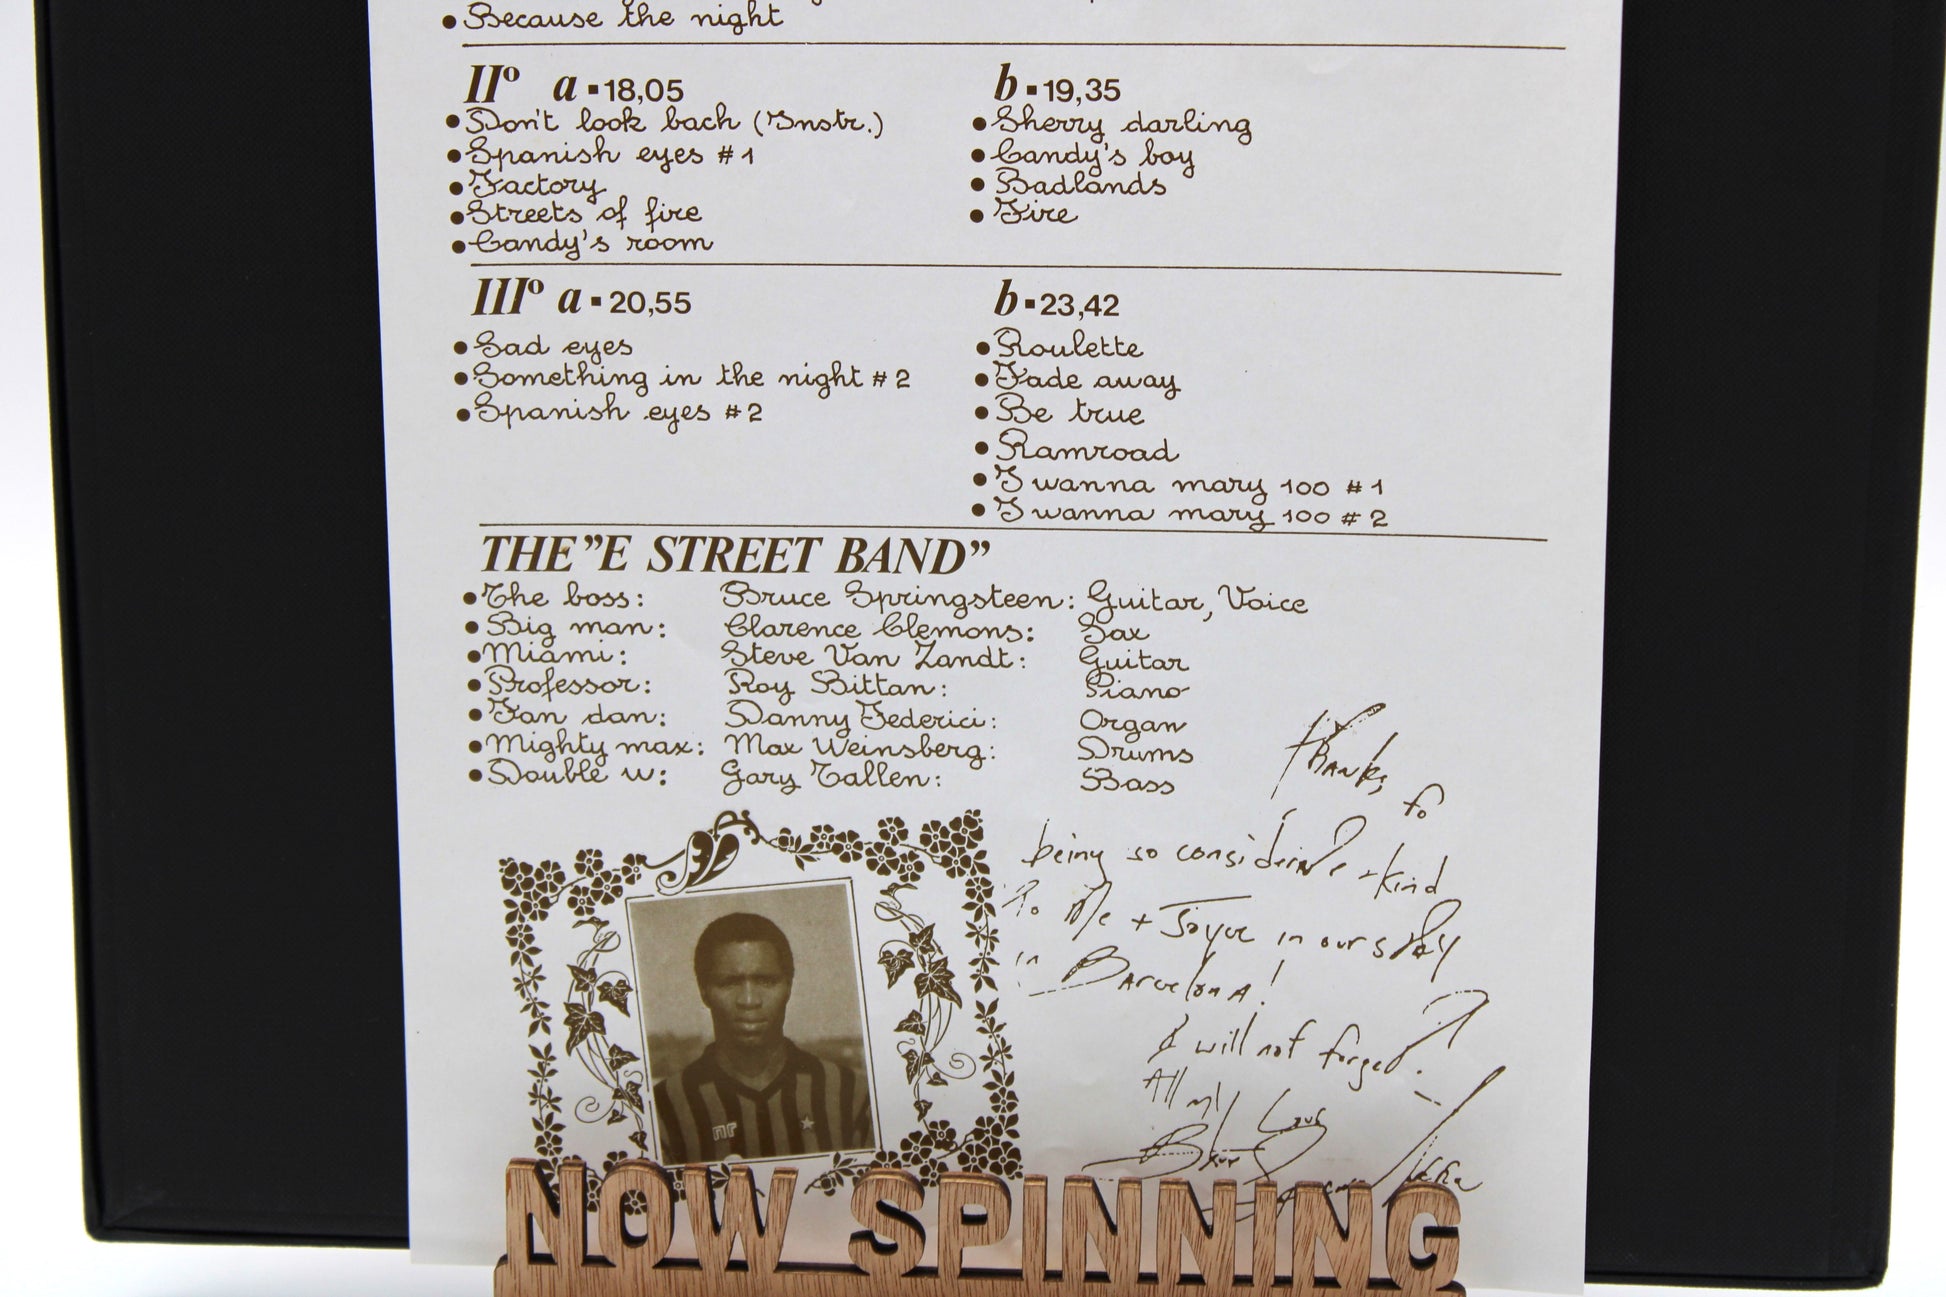 • Because the night
IIº a ▪ 18,05
• Don't look bach (Instr.)
• Spanish eyes #1
• Factory
• Streets of fire
• Candy's room
b ▪ 19,35
• Sherry darling
• Candy's boy
• Badlands
• Fire
IIIº a ▪ 20,55
• Sad eyes
• Something in the night #2
• Spanish eyes #2
b ▪ 23,42
• Roulette
• Fade away
• Be true
• Ramroad
• I wanna mary 100 #1
• I wanna mary 100 #2
THE "E STREET BAND"
• The boss: Bruce Springsteen: Guitar, Voice
• Big man: Clarence Clemons: Sax
• Miami: Steve Van Zandt: Guitar
• Professor: Roy Bittan: Piano
• Fan dan: Danny Federici: Organ
• Mighty max: Max Weinsberg: Drums
• Double w: Gary Tallen: Bass
Thanks to
being so considerate + kind
to Me + Joyce in our stay
in Barcelona!
I will not forget.
All my Love
nr
NOW SPINNING